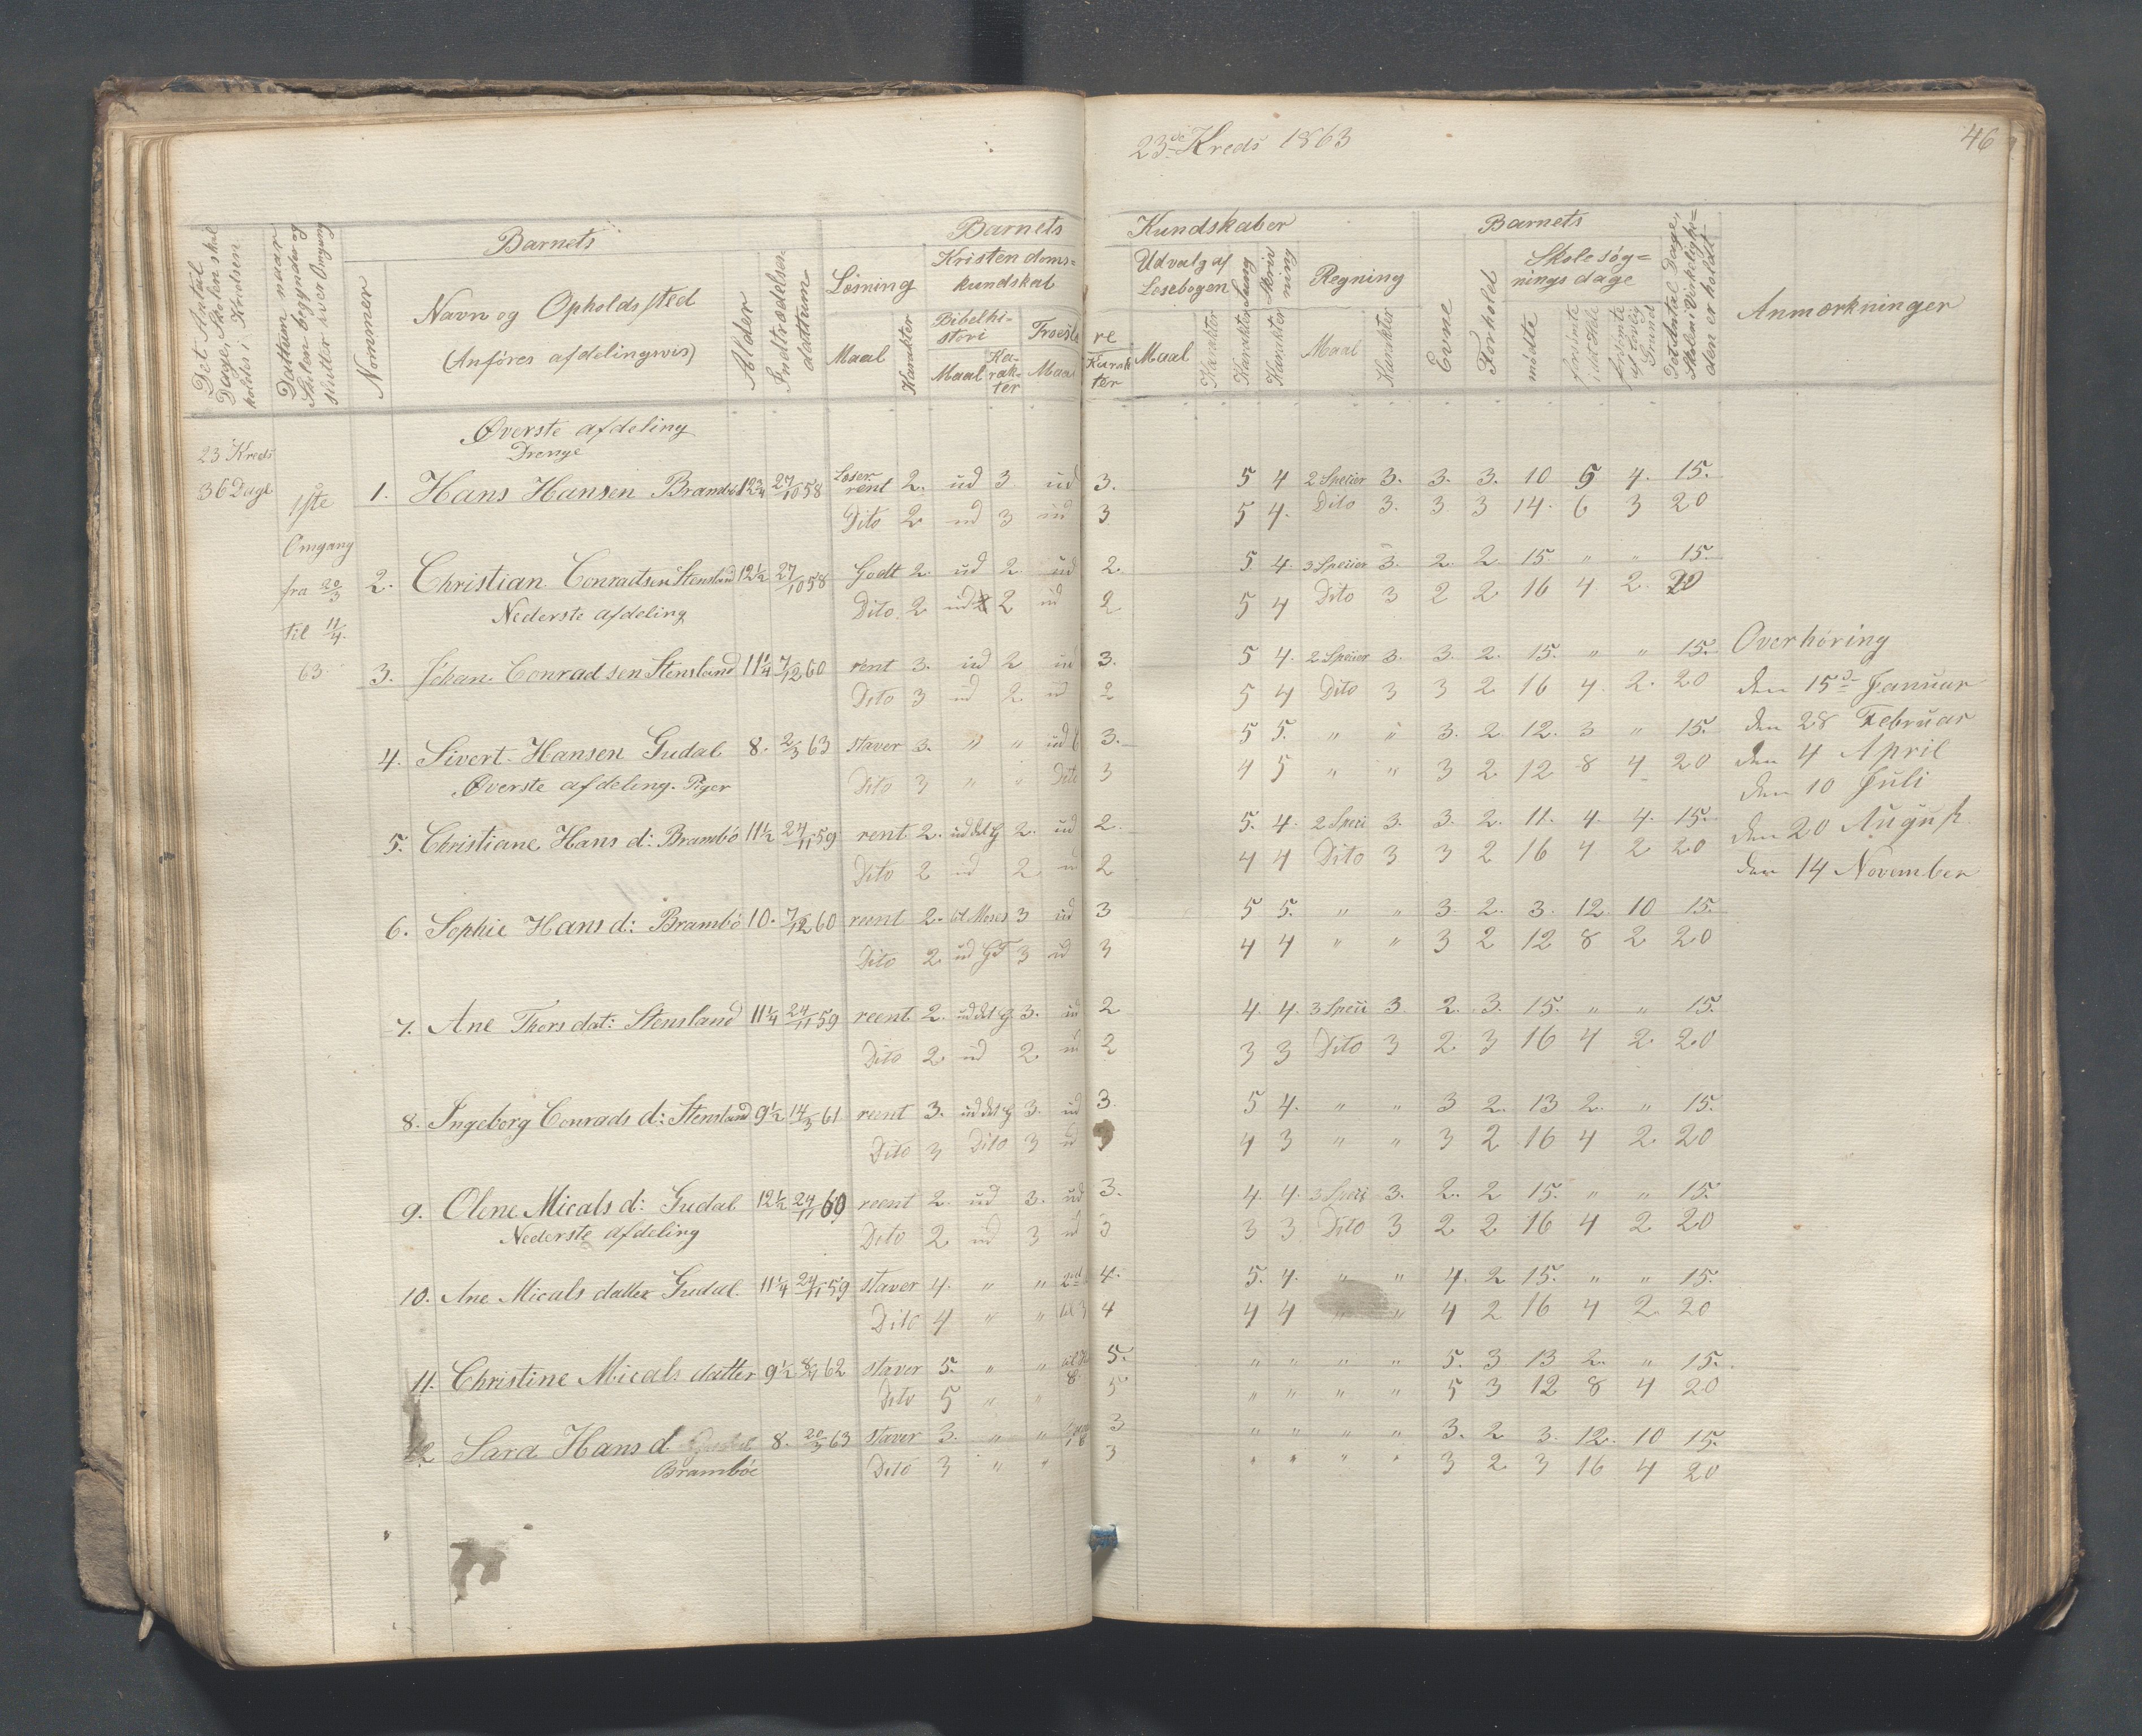 23de Kreds 1863
46
Det Antal Dage, Skolen skal holdes i Kredsen
Dattum naar Skolen begynder og slutter hver Omgang
Nommer
Barnets
Navn og Opholdssted
(Anføres afdelingsvis)
Alder
Indtrædelses datum
Barnets Kundskaber
Læsning
Maal
Karakter
Kristendomskundskab
Bibelhistori
Maal
Karakter
Troeslære
Maal
Karakter
Udvalg af Læsebogen
Maal
Karakter
Karakter Sang
Karakter Skrivning
Regning
Maal
Karakter
Barnets
Evne
Forhold
Skolesøgningsdage
mødte
forsømte i det Hele
forsømte af lovlig Grund
Det Antal Dage, Skolen i Virkeligheden er holdt
Anmærkninger
23 Kreds
36 Dage
1ste
Omgang
fra 20/3
til 11/4
63
Øverste afdeling
Drenge
1. Hans Hansen Brambö 12 3/4 27/10 58 Læser rent 2. ud 3 ud 3. 5 4 2 Speier 3. 3. 3. 10 5 4. 15.
Dito 2 ud 3 ud 3 5 4. Dito 3. 3 3 14. 6 3 20
2. Christian Conradsen Stensland 12 1/2 27/10 58 Godt 2. ud 2. ud 2. 5. 4. 3 Speiier 3. 2. 2. 15 " " 15.
Dito 2 ud 2 ud 2 5 4 Dito 3 2 2 16 4 2. 20
Nederste afdeling
3. Johan Conradsen Stensland 11 1/4 7/12 60 rent 3. ud 2 ud 3. 5 4. 2 Speiier 3. 3. 2. 15. " " 15.
Dito 3 ud 2. ud 2 5 4 Dito 3 3 2 16 4 2. 20
4. Sivert Hansen Gudal 8. 2/3 63 staver 3. " " ud 3. 5 5. " " 3. 2 12. 3 " 15.
Dito 3 " " Dito 3 4 5 " " 3 2 12 8 4 20
Øverste afdeling. Piger
5. Christiane Hans d: Brambö 11 1/2 24/11 59 rent 2. ud det g 2. ud 2. 5. 4. 2 Speci 3. 3. 2. 11. 4. 4. 15.
Dito 2 ud 2 ud 2 4 4 Dito 3 3 2 16 4 2 20
6. Sophie Hans d: Brambö 10. 7/12 60 reent 2. til Moses 3 ud 3 5 5. " " 3. 2. 3. 12. 10 15.
Dito 2 ud GT 3 ud 3 4 4 " " 3 2 12 8 2 20
7. Ane Thors dat: Stensland 11 1/4 24/11 59 reent 2. ud det g 3. ud 2 4. 4. 3 Speii 3. 2. 3. 15. " " 15.
Dito 2 ud 2 ud 2 3 3 Dito 3 2. 3 16 4 2. 20
8. Ingeborg Conrads d: Stensland 9 1/2 14/3 61 reent 3. ud det g 3. ud 3. 5 4. " " 3 2. 13 2. " 15.
Dito 3 Dito 3 ud 3 4 3 " " 3 2 16 4 2. 20
9. Olene Micals d: Gudal 12 1/2 24/11 60 reent 2. ud 3. ud 3. 4. 4. 3 Speci 3. 2. 2 15. " " 15.
Dito 2 ud 3 ud 3 3 3 Dito 3 2 2 16 4 2 20
Nederste afdeling
10. Ane Micals datter Gudal 11 1/4 24/11 59 staver 4. " " 4. 5. 4. " " 4. 2 15. " " 15.
Dito 4 " " til 3 4 4 4 " " 4 2 16 4 2. 20
11. Christine Micals datter 9 1/2 62 staver 5. " " 5. " " " " 5. 3 13 2. " 15.
Dito 5 " " 5 " " " " 5 3 12 8 4 20
12 Sara Hans d 8. 20/3 63 staver 3. " " 3 " " " " 3. 2 3. 12. 10 15.
Brambøe Dito 3 " " 3 " " " " 3 2 3 16 4 20
Overhøring
den 15de Januar
den 28 Februar
den 4 April
den 10 Juli
den 20 August
den 14 November